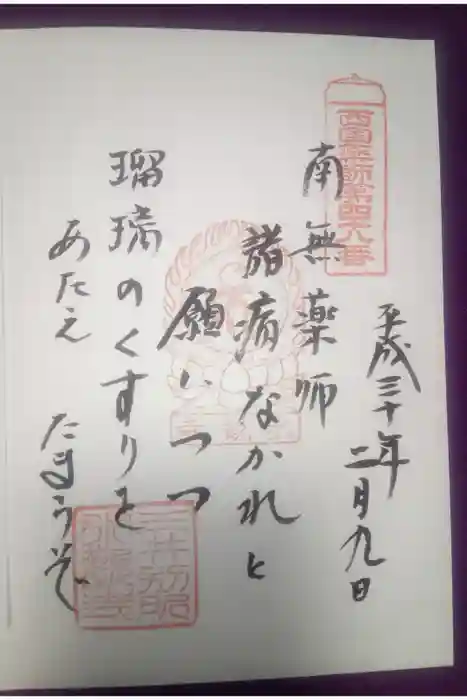 西国薬師第四十八番
平成三十年
二月九日
南無薬師
諸病なかれと
願いつつ
瑠璃のくすりを
あたえ たまうぞ